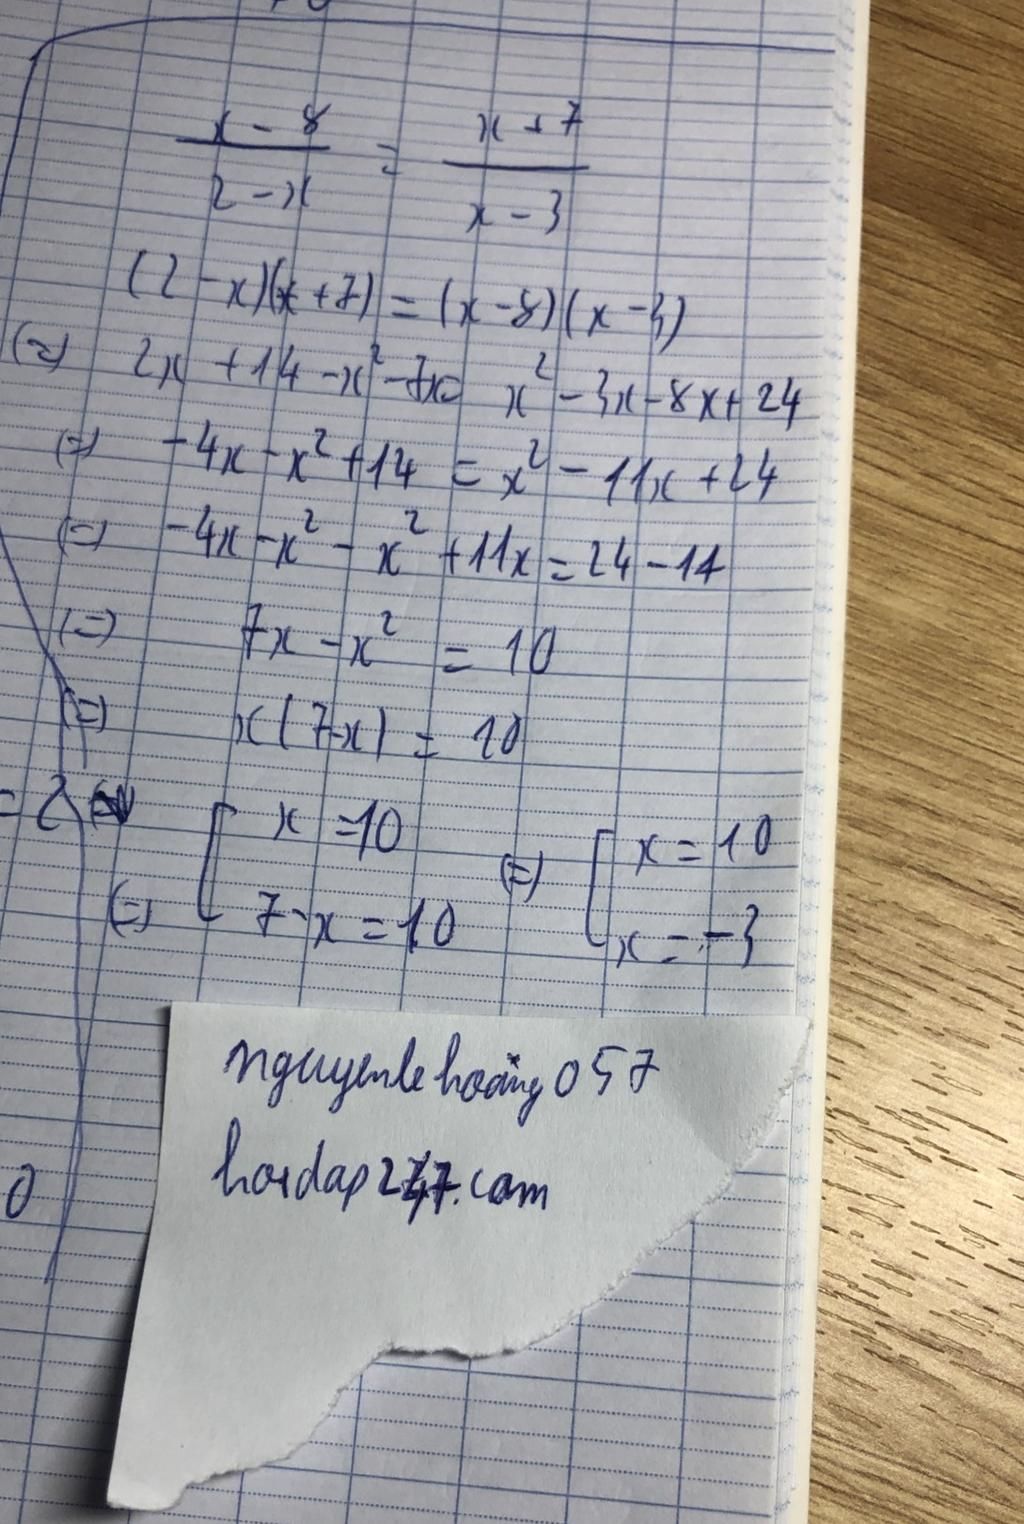 x - 8 / 2 - x = x + 7 / x - 3
(2 - x)(x + 7) = (x - 8)(x - 3)
(=) 2x + 14 - x² - 7x = x² - 3x - 8x + 24
(=) -4x - x² + 14 = x² - 11x + 24
(=) -4x - x² - x² + 11x = 24 - 14
(=) 7x - x² = 10
(=) x(7-x) = 10
= 2
(=) [ x = 10 (=) [ x = 10
7 - x = 10 x = -3
nguyenlehoang057
hoidap247.com
0